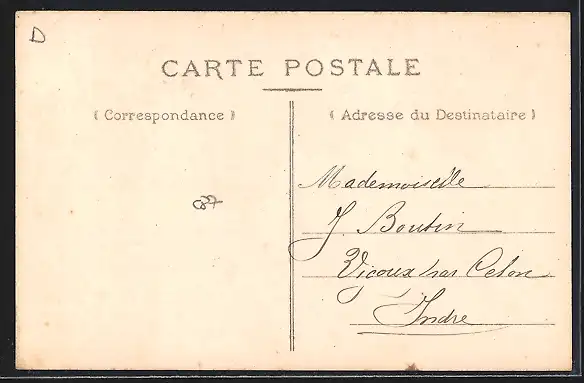 D
CARTE POSTALE
( Correspondance )
( Adresse du Destinataire )
Mademoiselle
J. Boutin
Vigoux par Celon
Indre